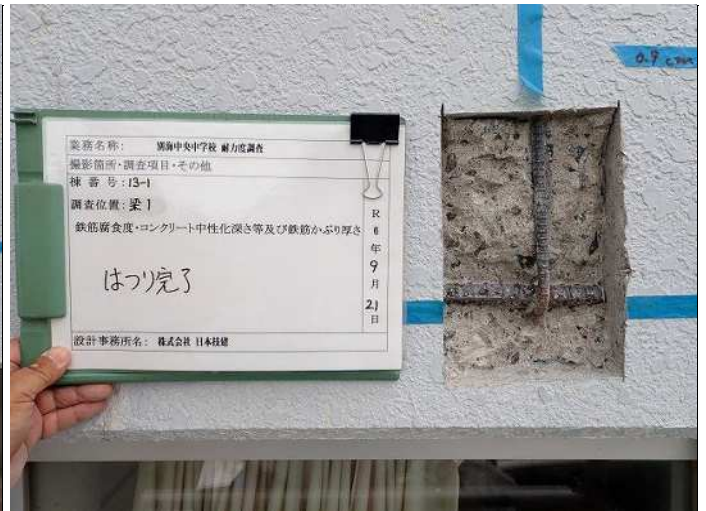 業務名称： 別海中央中学校 耐力度調査
撮影箇所・調査項目・その他
棟番号：13-1
調査位置：梁1
鉄筋腐食度・コンクリート中性化深さ等及び鉄筋かぶり厚さ
はつり完了
R
6
年
9
月
21
日
設計事務所名： 株式会社 日本技建
0.9